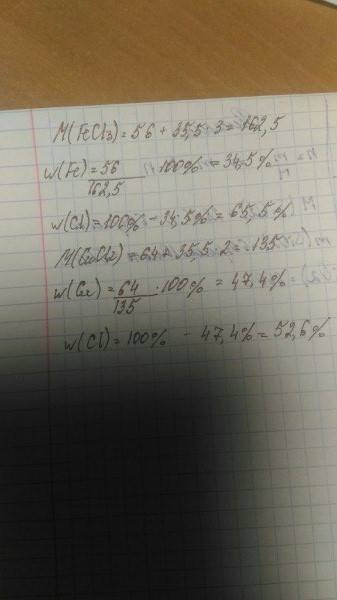 M(FeCl3) = 56 + 35,5 · 3 = 162,5
w(Fe) = 56/162,5 · 100% = 34,5%
w(Cl) = 100% - 34,5% = 65,5%
M(CuCl2) = 64 + 35,5 · 2 = 135
w(Cu) = 64/135 · 100% = 47,4%
w(Cl) = 100% - 47,4% = 52,6%